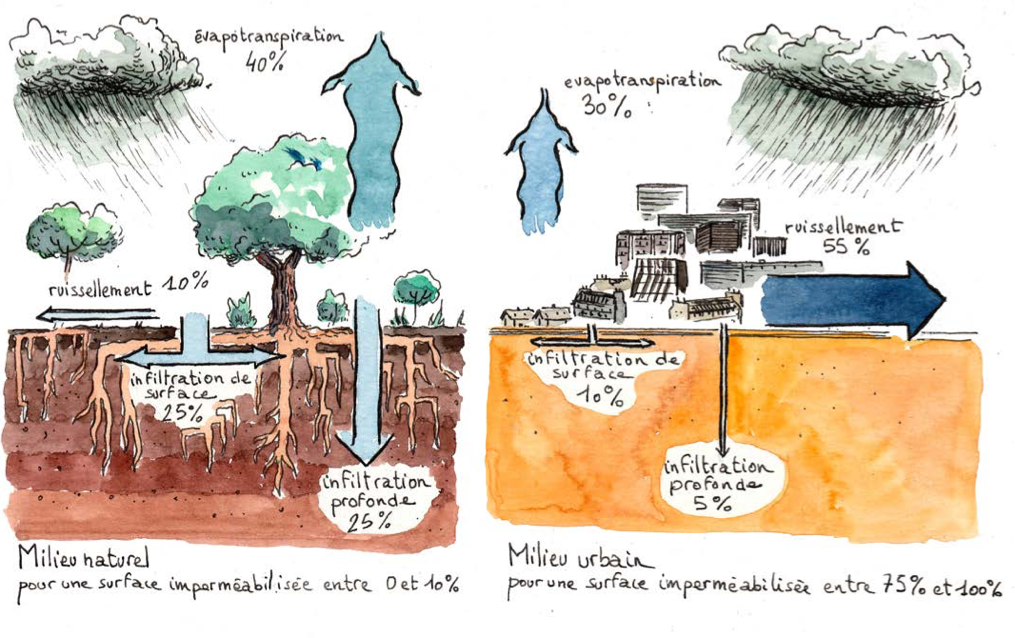 évapotranspiration
40%
ruissellement 10%
infiltration de
surface
25%
infiltration
profonde
25%
Milieu naturel
pour une surface imperméabilisée entre 0 et 10%
evapotranspiration
30%
ruissellement
55 %
infiltration de
surface
10%
infiltration
profonde
5%
Milieu urbain
pour une surface imperméabilisée entre 75% et 100%